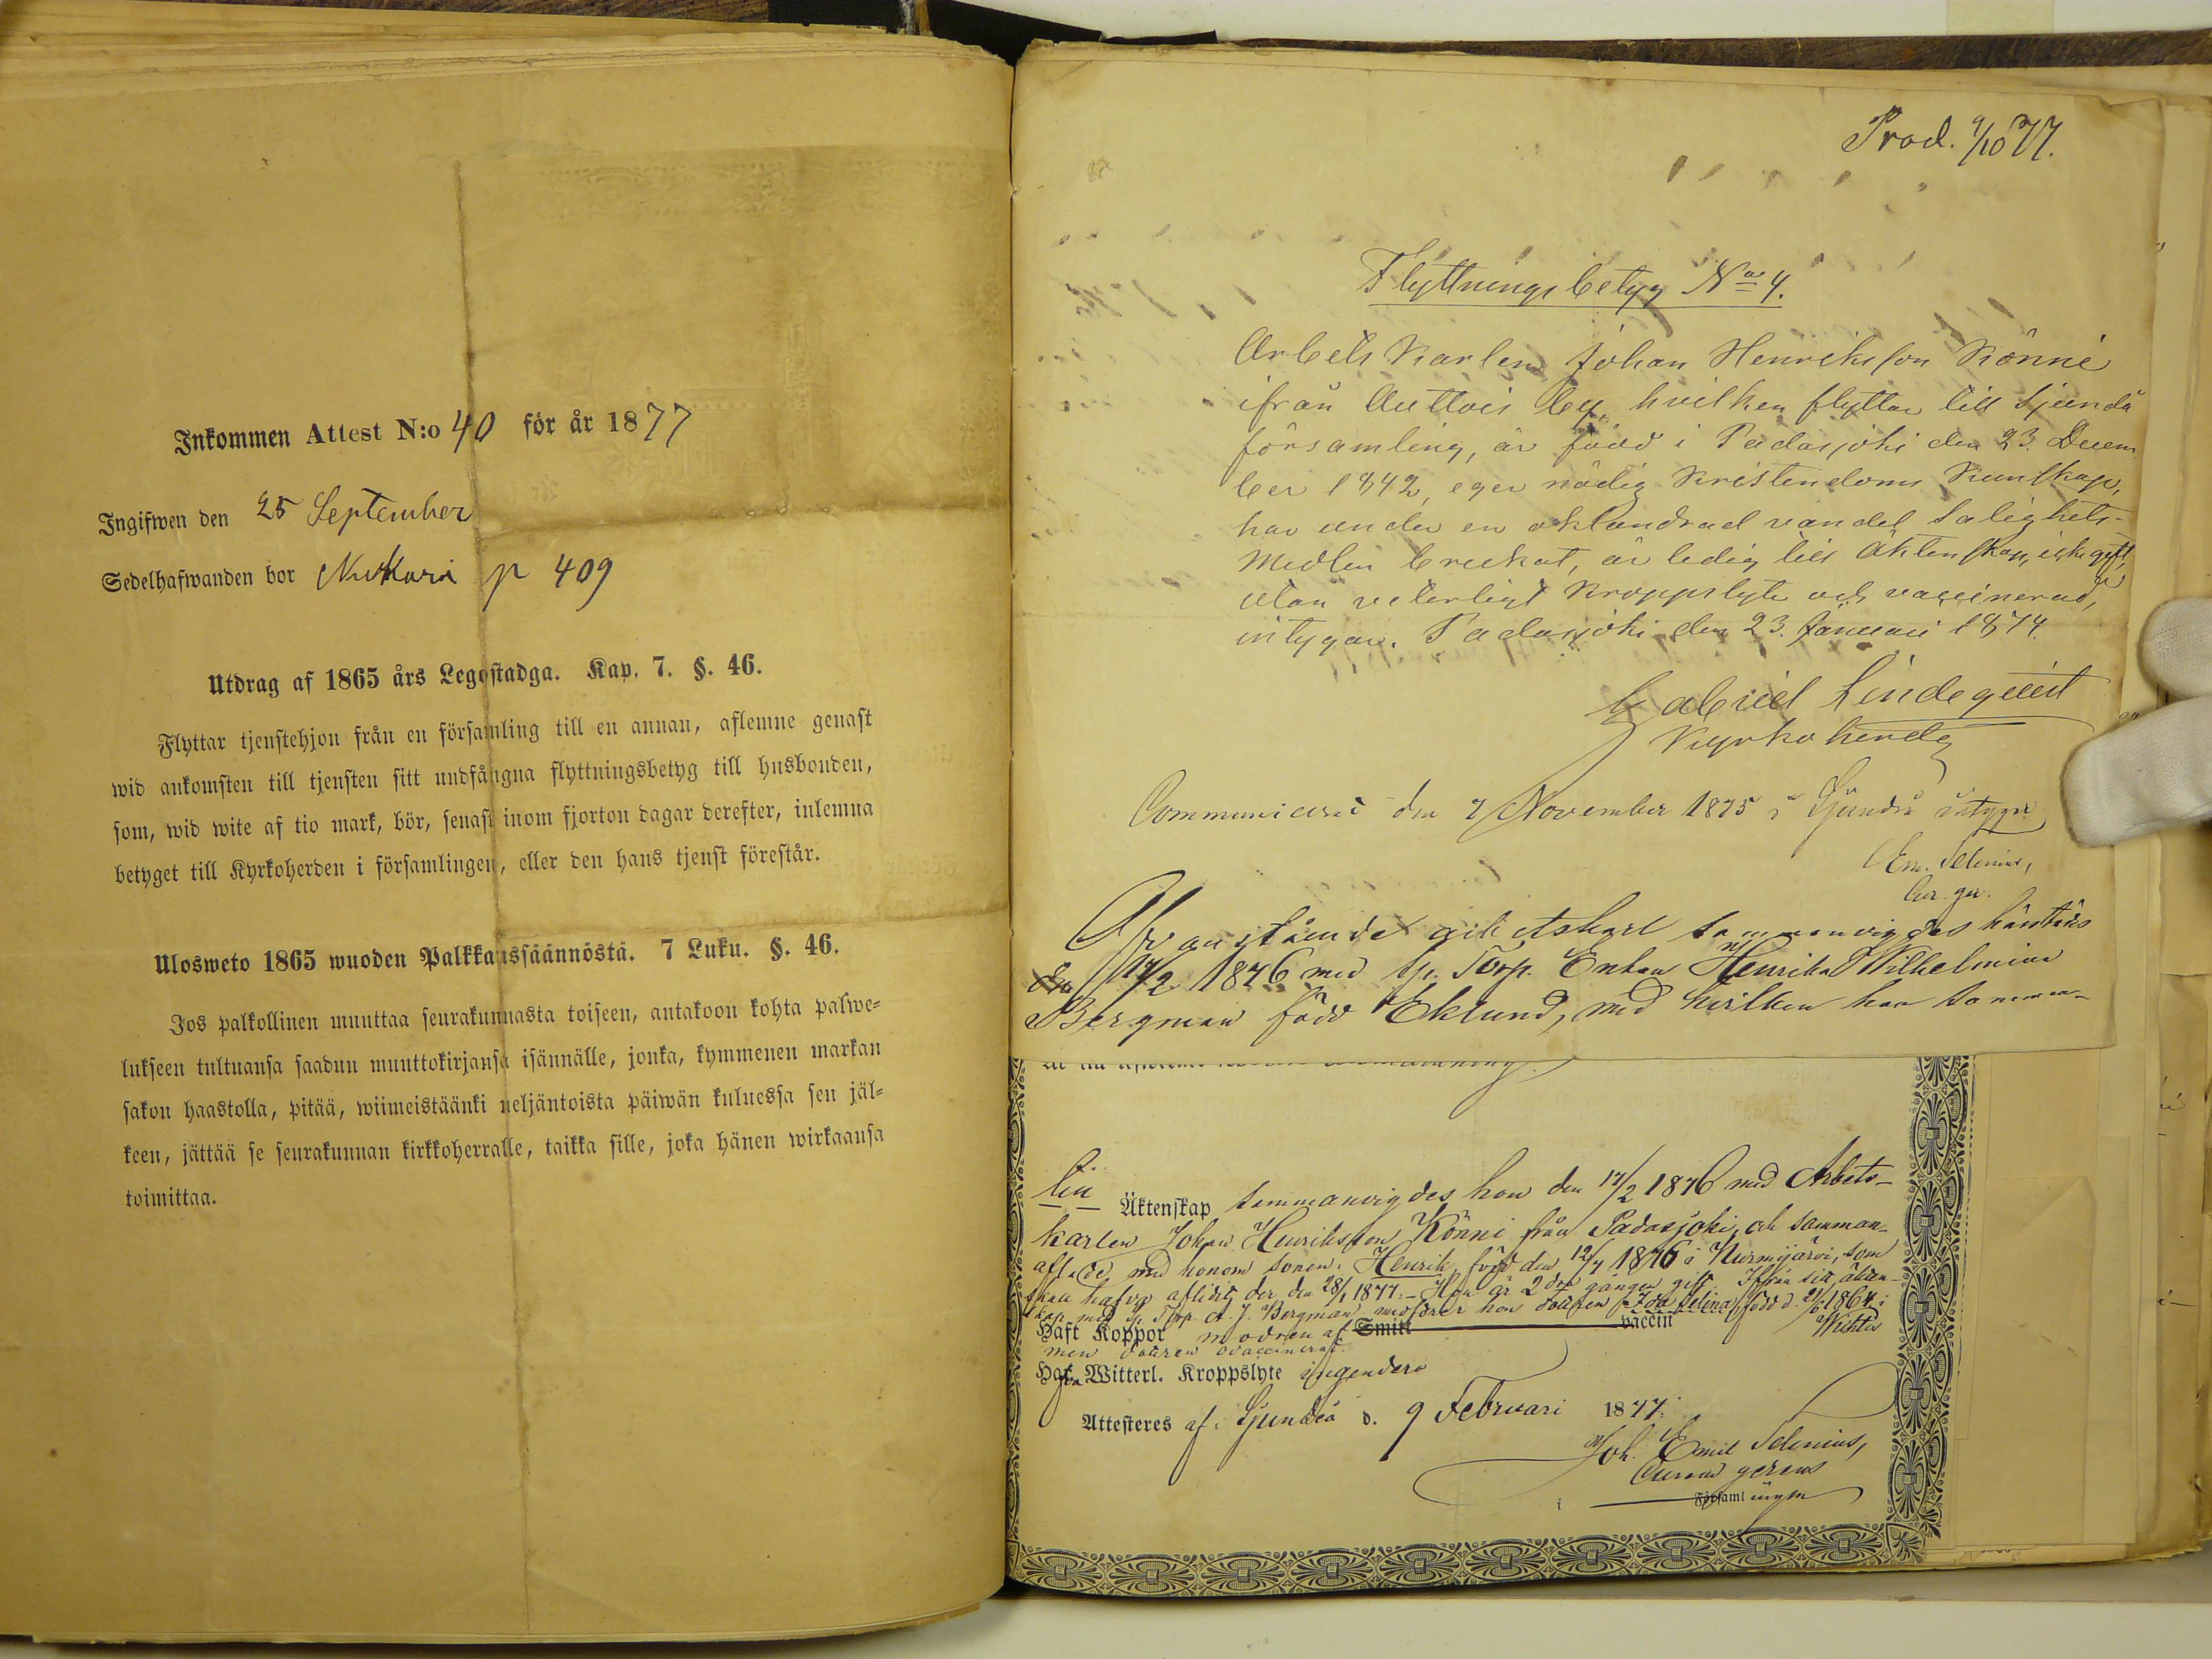 Inkommen Attest N:o 40 för år 1877
Ingifwen den 25 September
Sedelhafwanden bor Nukari p 409
Utdrag af 1865 års Legostadga. Kap. 7. §. 46.
Flyttar tjenstehjon från en församling till en annan, aflemne genast
wid ankomsten till tjensten sitt undfångna flyttningsbetyg till husbonden,
som, wid wite af tio mark, bör, senast inom fjorton dagar derefter, inlemna
betyget till Kyrkoherden i församlingen, eller den hans tjenst förestår.
Ulosweto 1865 wuoden Palkkaussäännöstä. 7 Luku. §. 46.
Jos palkollinen muuttaa seurakunnasta toiseen, antakoon kohta palwe-
lukseen tultuansa saadun muuttokirjansa isännälle, jonka, kymmenen markan
sakon haastolla, pitää, wiimeistäänki neljäntoista päiwän kuluessa sen jäl-
keen, jättää se seurakunnan kirkkoherralle, taikka sille, joka hänen wirkaansa
toimittaa.
Prod. 9/10 77.
Flyttningsbetyg No 4.
Arbets Karlen Johan Henriksson Könni
ifrån Auttois by, hvilken flyttar till Sjundå
församling, är född i Padasjoki den 23 Decem
ber 1842, eger nödig Kristendoms Kunskap,
har under en oklandrad vandel Salighets-
medlen brukat, är ledig till Äktenskap, icke gift,
utan veterligt Kroppslyte och vaccinerad,
intygar. Padasjoki den 23. Januari 1874.
Gabriel Lindequist
Kyrkoherde
Communicerat den 7 November 1875 i Sjundeå intygar
Em. Selenius,
Cur. ger.
Ofvanstående arbetskarl sammanvigdes härstädes
17/2 1876 med Sp. Torp. Enkan Henrika Wilhelmina
Bergman född Eklund, med hvilken han samman-
till Äktenskap sammanvigdes hon den 17/2 1876 med Arbets-
karlen Johan Henriksson Könni från Padasjoki, och samman-
aflade med honom sonen: Henrik, född den 12/7 1876 i Nurmijärvi, som
skall hafva aflidit der den 28/1 1877. - Hon är 2 dra gången gift. Ifrån sitt äkten-
skap med Sp. Torp. A. J. Bergman medförer hon dottren Ida Selina, född d. 1864 i
Wichtis
Haft Koppor modren af Smitt vaccin
men dottren ovaccinerad.
Haf. Witterl. Kroppslyte ingendera
Attesteres af: Sjundeå d. 9 Februari 1877.
Joh. Emil Selenius,
Curam gerens
i Församlingen